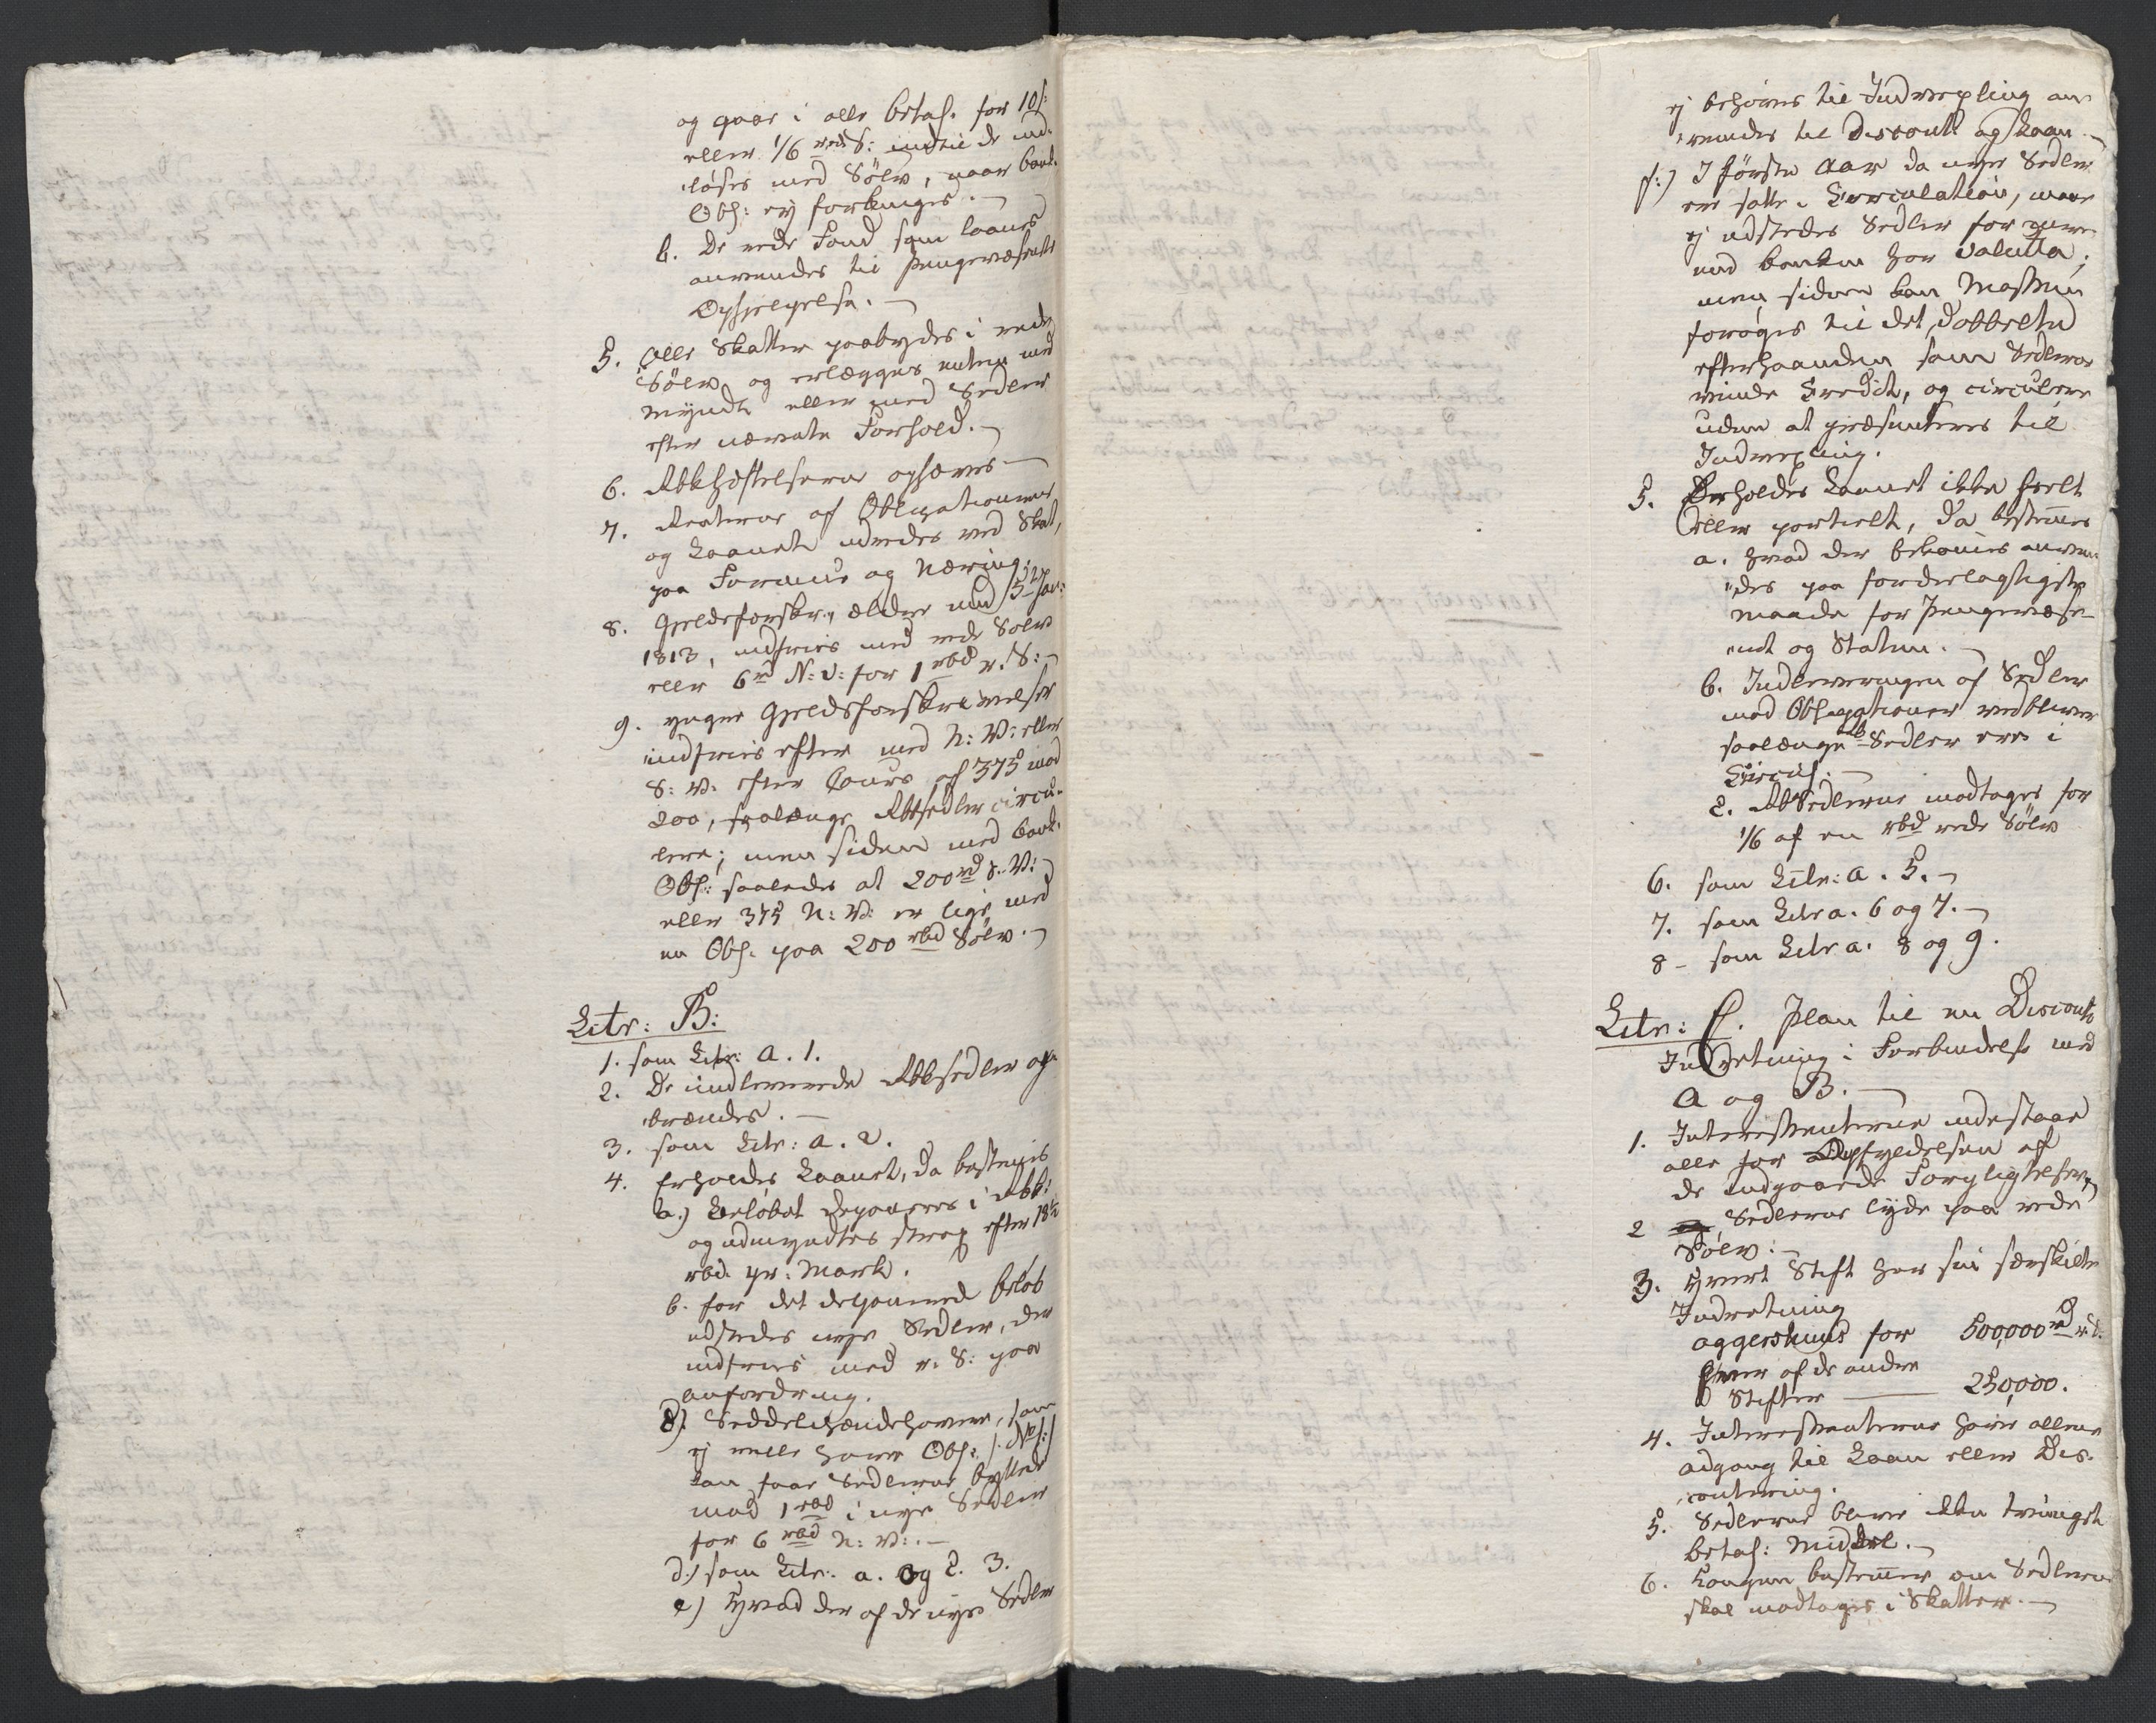 og gaar i alle betal. for 10 s:
eller 1/6 rbd S: indtil de ind-
løses med Sölv, naar bank
Obl: ej forlanges.
b. De rede Fond som laanes
anvendes til Pengevæsenets
Ophjelpelse.
5. Alle Skatter paabydes i rede
Sölv og erlægges enten med
Myndt eller med Sedler
efter nævnte Forhold.
6. Rbhæftelserne ophæves
7. Renterne af Obligationerne
og Laanet udredes ved Skat,
paa Formue og Næring.
8. Gjeldsforskr., ældre end 5te Jan:
1813, indfries med rede Sölv
eller 6 rd N: V: for 1 rbd r. S:
9. yngre Gjeldsforskrivelser
indfries efter med N: V: eller
S: V: efter Cours af 375 mod
200, saalænge Rbsedler circu-
lere; men siden med bank
Obl: saaledes at 200 rd S. V:
eller 375 N: V: er lige med
en Obl. paa 200 rbd Sölv.
Litr: B:
1. som Litr: A. 1.
2. De indleverede Rbbsedler op-
brændes.
3. som Litr: a. 2.
4. Erholdes Laanet, da bestemmes
a.) Beløbet deponeres i Rbb:
og udmyndtes strax efter 18½
rbd. pr: Mark.
b. for det deponered beløb
udstedes nye Sedler, der
indfries med r. S: paa
anfordring.
Seddelihændehavere, som
ej ville have Obl:
kan faae Sedlerne byttede
mod 1 rbd i nye Sedler
for 6 rbd N: V:.
d.) som Litr: a. og 3.
e) Hvad der af de nye Sedler
ej behøves til Indvexling an-
vendes til Discont og Laan.
f:) I første Aar da nye Sedler
ere satte i Circulation, maae
ej udstedes Sedler for mere
end banken har Valutta;
men siden kan Massen
forøges til det dobbelte
efterhaanden som Sedlerne
vinde Credit, og circulere
uden at præsenteres til
Indvexling.
5. Erholdes Laanet ikke heelt
eller partielt, da bestemmes
a. hvad der bekommes anven-
des paa fordelagtigste
maade for Pengevæse-
net og Staten.
b. Indleveringen af Sedler
mod Obligationer vedbliver
saalænge Rb Sedler ere i
Circul.
c. RbSedlerne modtages for
1/6 af en rbd rede Sölv
6. som Litr: a. 5.
7. som Litr a. 6 og 7.
8 - som Litr a. 8 og 9.
Litr: C. Plan til en Disconto
Indretning i Forbindelse med
A og B.
1. Interessenterne indestaae
alle for Opfyldelsen af
de indgaaede Forpligtelser
2 Sedlerne lyde paa rede
Sölv.
3. Hvert Stift har sin særskilte
Indretning
Aggershuus for 500,000 rd r. S.
hver af de andre
Stifter 250,000.
4. Interessenterne have allene
adgang til Laan eller Dis-
contering.
5. Sedlerne blive ikke tvungent
betal: Middel.
6. Kongen bestemmer om Sedlerne
skal modtages i Skatter.